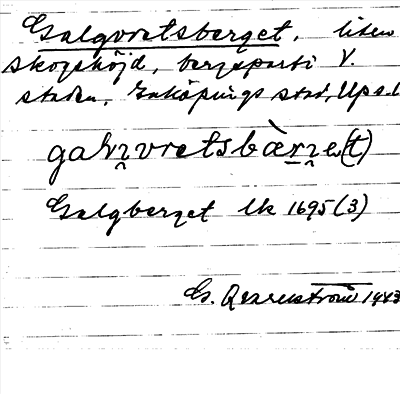 Galgvretsberget, liten
skogshöjd, bergsparti V.
staden, Enköpings stad, Upsl.
Galgberget lk 1695 (3)
G. 1943